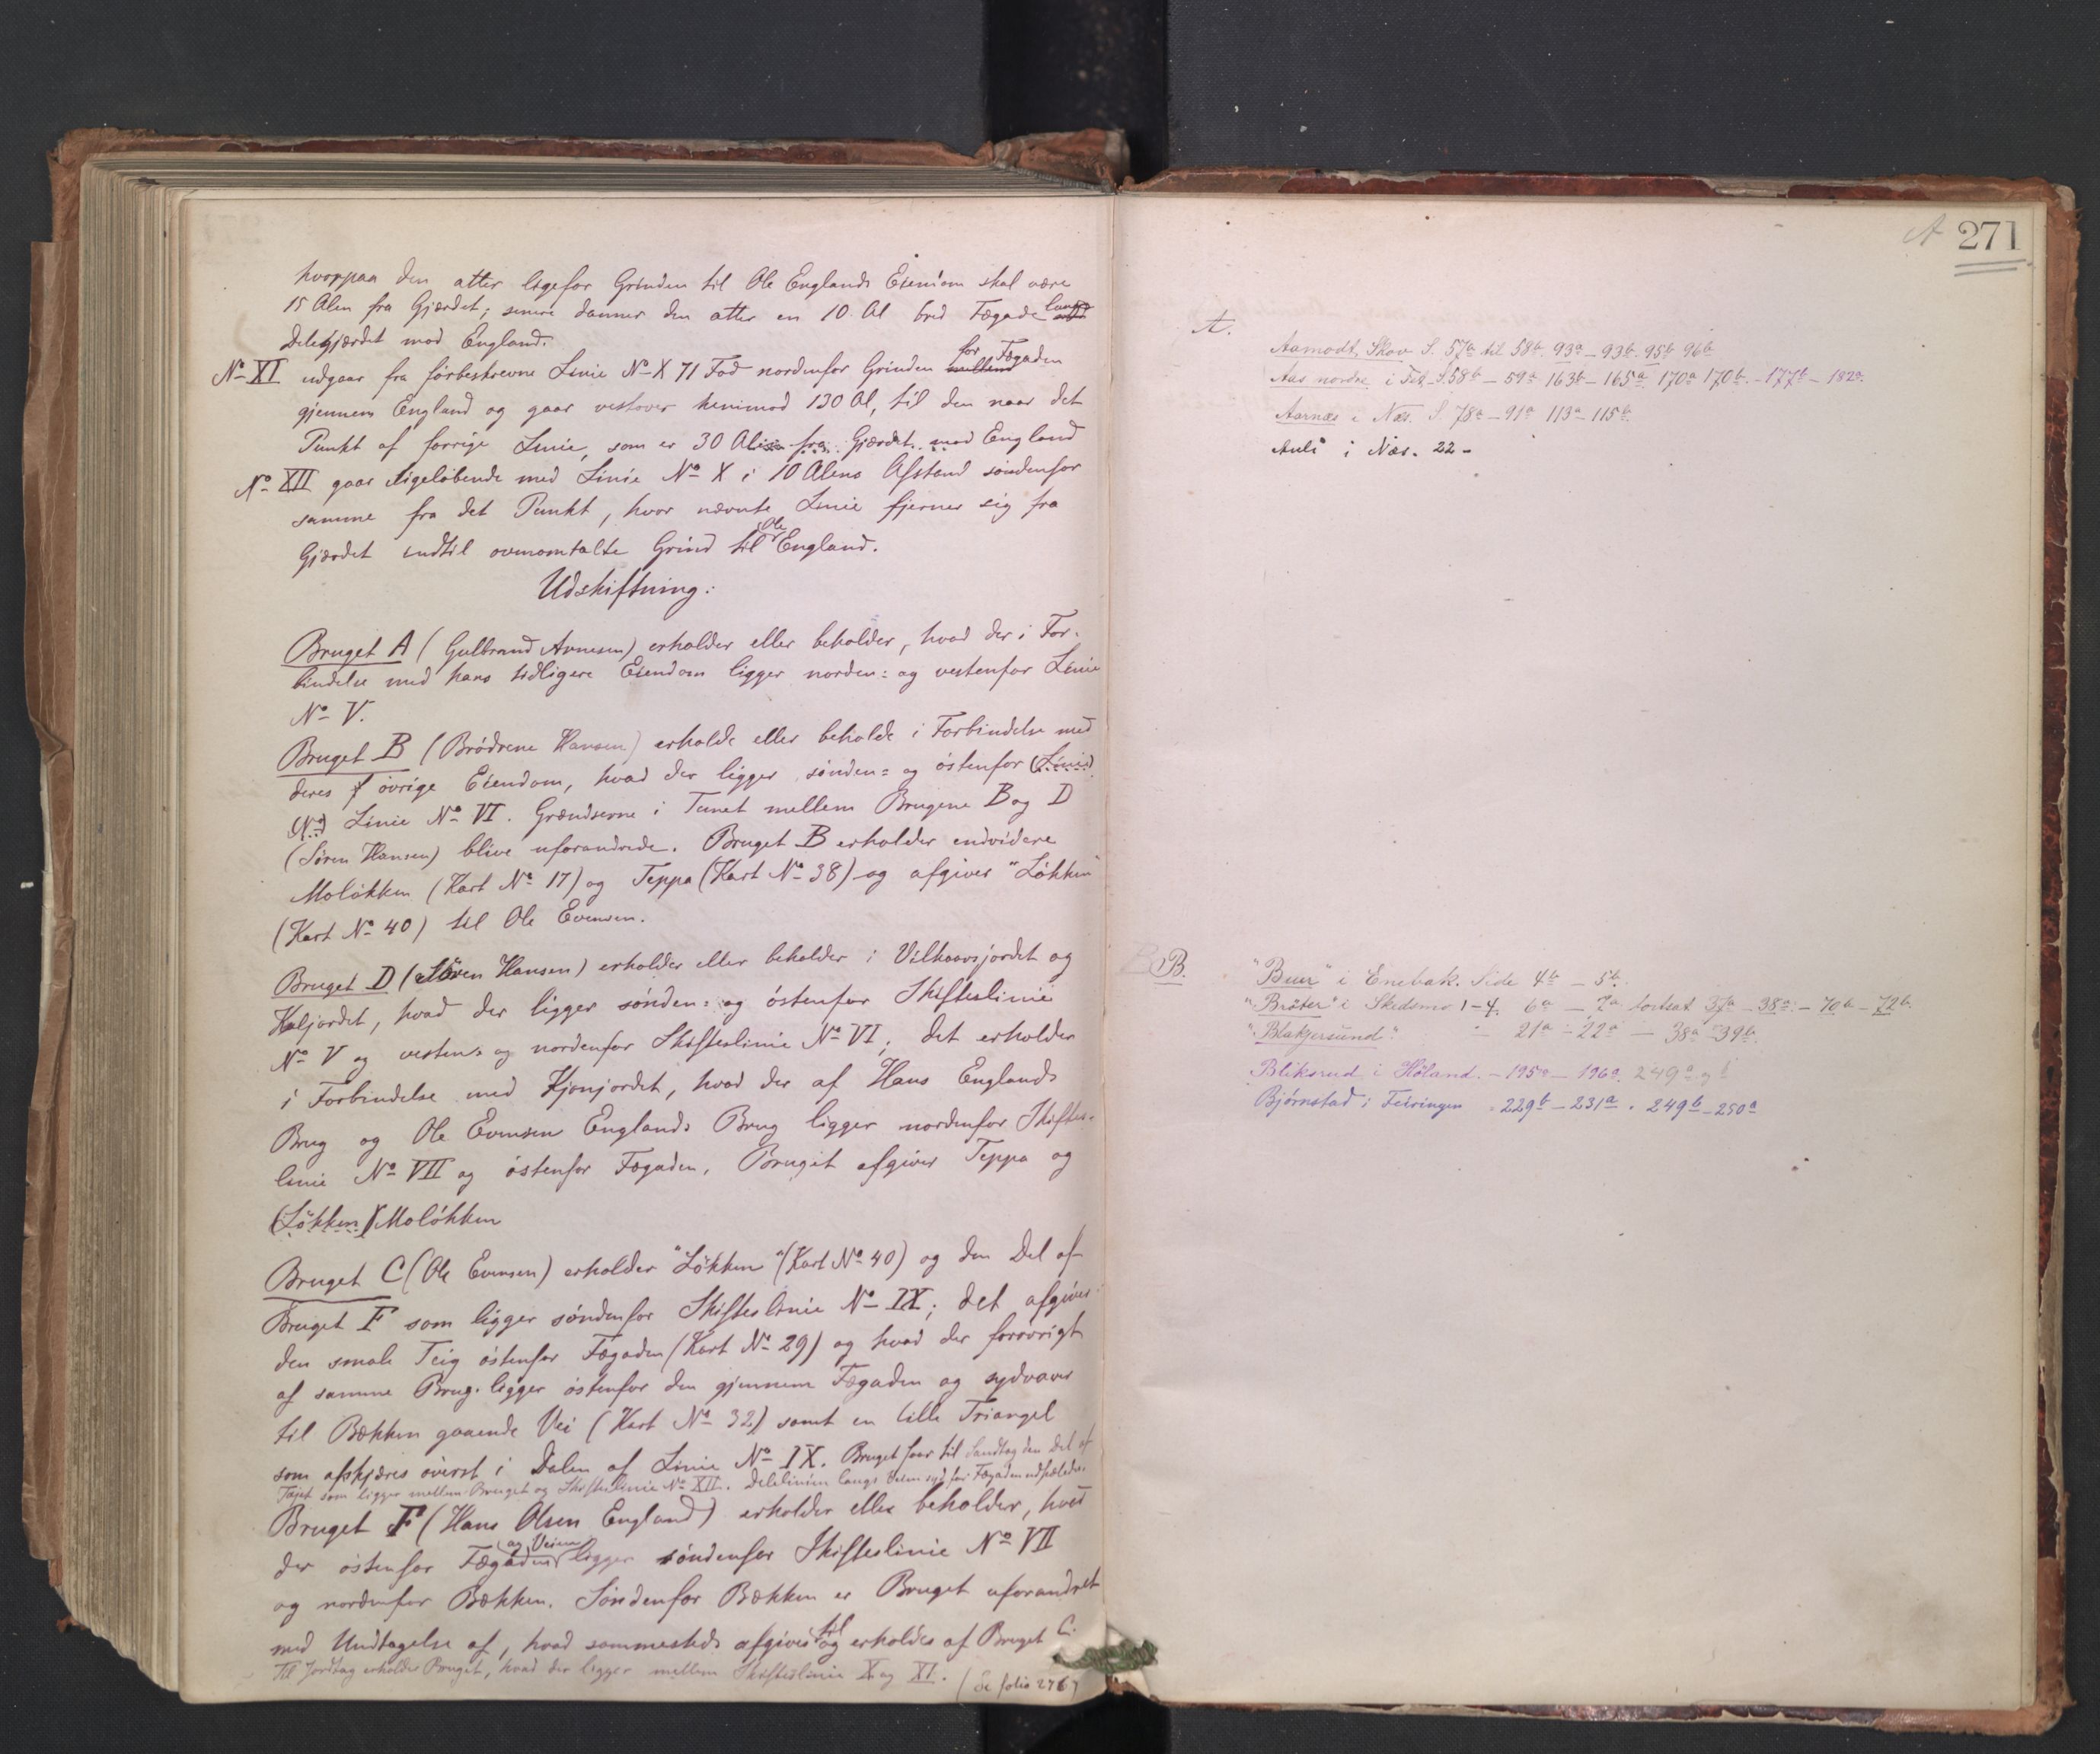 hvorpaa den atter ligefor Grinden til Ole Englands Eiendom skal være
15 Alen fra Gjærdet; senere danner den atter en 10 Al bred Fægade langs
Delegjærdet mod England.
No XI udgaar fra førbeskrevne Linie No X 71 Fod nordenfor Grinden for Fægaden
gjennem England og gaar vestover henimod 130 Al, til den naar det
Punkt af forrige Linie, som er 30 Alen fra Gjærdet mod England
No XII gaar ligeløbende med Linie No X i 10 Alens Afstand søndenfor
samme fra det Punkt, hvor nævnte Linie fjerner sig fra
Gjærdet indtil ovenomtalte Grind til Ole England.
Udskiftning:
Bruget A (Gulbrand Arnesen) erholder eller beholder, hvad der i For-
bindelse med hans tidligere Eiendom ligger norden= og vestenfor Linie
No V.
Bruget B (Brødrene Hansen) erholde eller beholde i Forbindelse med
deres øvrige Eiendom, hvad der ligger sønden= og østenfor (Linie)
(No) Linie No VI. Grændserne i Tunet mellem Brugene B og D
(Søren Hansen) blive uforandrede. Bruget B erholder endvidere
Moløkken (Kart No 17) og Teppa (Kart No 38) og afgiver "Løkken"
(Kart No 40) til Ole Evensen.
Bruget D (Søren Hansen) erholder eller beholder i Vilhaavsjordet og
Kaljordet, hvad der ligger sønden= og østenfor Skifteslinie
No V og vesten= og nordenfor Skifteslinie No VI; det erholder
i Forbindelse med Kjonjordet, hvad der af Hans Englands
Brug og Ole Evensen Englands Brug ligger nordenfor Skiftes-
linie No VII og østenfor Fægaden. Bruget afgiver Teppa og
(Løkken) Moløkken
Bruget C (Ole Evensen) erholder "Løkken" (Kart No 40) og den Del af
Bruget F som ligger søndenfor Skifteslinie No IX; det afgiver
den smale Teig østenfor Fægaden (Kart No 29) og hvad der forøvrigt
af samme Brug ligger østenfor den gjennem Fægaden og sydover
til Bækken gaaende Vei (Kart No 32) samt en lille Triangel
som afskjæres øverst i Dalen af Linie No IX. Bruget faar til Sandtag den Del af
Tajet som ligger mellem Bruget og Skifteslinie No XII. Delelinien langs Veien syd for Fægaden udpæledes.
Bruget F (Hans Olsen England) erholder eller beholder, hvad
der østenfor Fægaden og Veien ligger søndenfor Skifteslinie No VII
og nordenfor Bækken. Søndenfor Bækken er Bruget uforandret
med Undtagelse af, hvad sammesteds afgives til og erholdes af Bruget C.
Til Jordtag erholder Bruget, hvad der ligger mellem Skifteslinie X og XI. (Se folio 276)
A 271
A.
Aamodt Skov S. 57a til 58b. 93a - 93b. 95b 96b
Aas nordre i S. 58b - 59a 163b - 165a 170a 170b. - 177b - 182a.
Aarnæs i Næs. S 78a - 91a 113a - 115b.
Auli i Næs. 22 -
B.
"Buer" i Enebak. Side 4b - 5b.
"Bråter" i Skedsmo 1-4. 6a - 7a fortsat 37a - 38a - 70b - 72b.
"Blakjersund" - 21a - 22a - 38a - 39b.
Bliksrud i Høland. - 195a - 196a. 249a og b
Bjørnstad i Feiringen - 229b - 231a. 249b - 250a